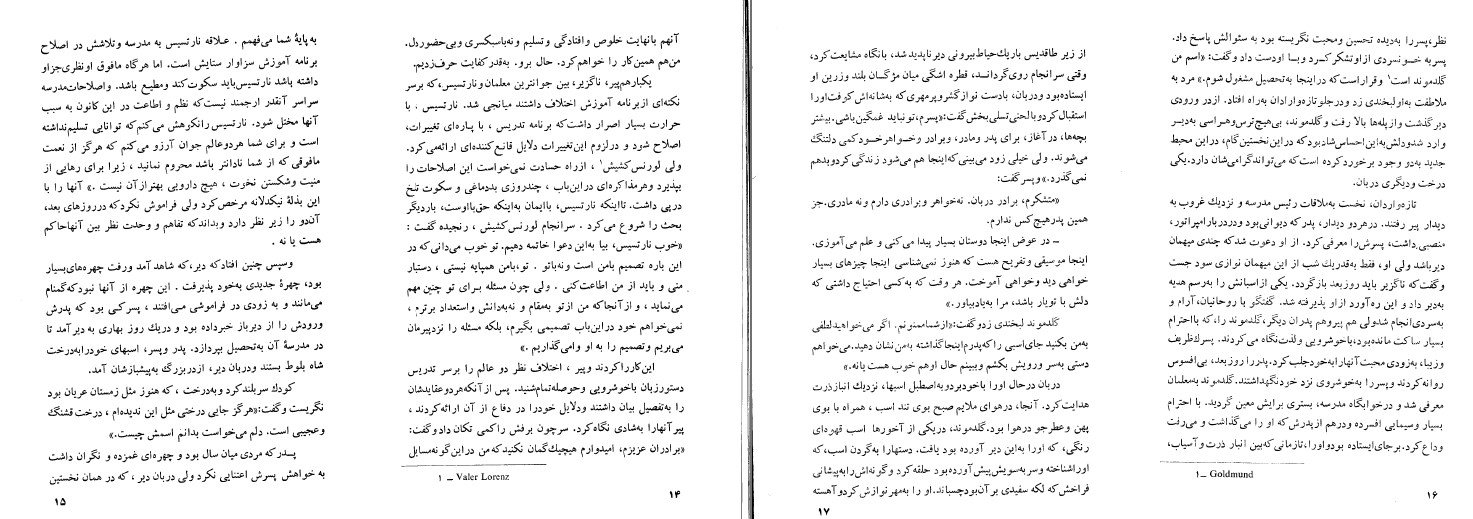 آنهم بانهایت خلوص وافتادگی وتسلیم ونه باسبکسری وبی‌حضوردل.
من‌هم همین‌کار را خواهم‌کرد. حال برو. به‌قدر کفایت حرف‌زدیم.
یکبارهم‌پیر، ناگزیر، بین جوانترین معلمان ونارتسیس، که‌برسر
نکته‌ای ازبرنامه آموزش اختلاف داشتند میانجی شد. نارتسیس ، با
حرارت بسیار اصرار داشت‌که برنامه تدریس ، با پاره‌ای تغییرات،
اصلاح شود و درلزوم این‌تغییرات دلایل قانع‌کننده‌ای ارائه‌می‌کرد.
ولی لورنس‌کشیش۱ ، ازراه حسادت نمی‌خواست این اصلاحات را
بپذیرد وهرمذاکره‌ای دراین‌باب ، چندروزی بددماغی و سکوت تلخ
درپی داشت. تااینکه نارتسیس، باایمان به‌اینکه حق‌بااوست، باردیگر
بحث را شروع می‌کرد . سرانجام لورنس‌کشیش ، رنجیده گفت :
«خوب نارتسیس، بیا به‌این دعوا خاتمه دهیم. تو خوب می‌دانی‌که در
این باره تصمیم بامن است ونه‌باتو . تو،بامن همپایه نیستی ، دستیار
منی و باید از من اطاعت‌کنی . ولی چون مسئله برای تو چنین مهم
می‌نماید ، و ازآنجاکه من ازتو به‌مقام و نه‌به‌دانش واستعداد برترم ،
نمی‌خواهم خود دراین‌باب تصمیمی بگیرم، بلکه مسئله را نزدپیرمان
می‌بریم وتصمیم را به او وامی‌گذاریم .»
این‌کارراکردند وپیر ، اختلاف نظر دو عالم را برسر تدریس
دستورزبان باخوشرویی وحوصله‌تمام‌شنید. پس ازآنکه‌هردوعقایدشان
را به‌تفصیل بیان داشتند ودلایل خودرا در دفاع از آن ارائه‌کردند ،
پیرآنهارا به‌شادی نگاه‌کرد. سرچون برفش راکمی تکان دادوگفت:
«برادران عزیزم، امیدوارم هیچیک‌گمان نکنیدکه‌من در این‌گونه‌مسایل
۱ ــ Valer Lorenz
۱۴
به پایهٔ شما می‌فهمم . علاقه نارتسیس به مدرسه وتلاشش در اصلاح
برنامه آموزش سزاوار ستایش است. اما هرگاه مافوق اونظری‌جزاو
داشته باشد نارتسیس‌باید سکوت‌کند ومطیع باشد. واصلاحات‌مدرسه
سراسر آنقدر ارجمند نیست‌که نظم و اطاعت در این کانون به سبب
آنها مختل شود. نارتسیس رانکوهش می‌کنم‌که توانایی تسلیم‌نداشته
است و برای شما هردوعالم جوان آرزو می‌کنم که هرگز از نعمت
مافوقی که از شما نادانتر باشد محروم نمانید ، زیرا برای رهایی از
منیت وشکستن نخوت ، هیچ دارویی بهترازآن نیست .» آنها را با
این بذلهٔ نیکدلانه مرخص‌کرد ولی فراموش نکردکه درروزهای بعد،
آن‌دو را زیر نظر دارد وبداندکه تفاهم و وحدت نظر بین آنهاحاکم
هست یا نه .
وسپس چنین افتادکه دیر،که شاهد آمد ورفت چهره‌های‌بسیار
بود، چهرهٔ جدیدی به‌خود پذیرفت . این چهره از آنها نبودکه‌گمنام
می‌مانند و به زودی در فراموشی می‌افتند ، پسرکی بود که پدرش
ورودش را ازدیرباز خبرداده بود و دریک روز بهاری به دیرآمد تا
در مدرسهٔ آن به‌تحصیل بپردازد. پدر وپسر، اسبهای خودرابه‌درخت
شاه بلوط بستند ودربان دیر، ازدربزرگ به‌پیشبازشان آمد.
کودک سربلندکرد وبه‌درخت ، که هنوز مثل زمستان عریان بود
نگریست وگفت:«هرگز جایی درختی مثل این ندیده‌ام ، درخت قشنگ
وعجیبی است. دلم می‌خواست بدانم اسمش چیست.»
پدرکه مردی میان سال بود و چهره‌ای غمزده و نگران داشت
به خواهش پسرش اعتنایی نکرد ولی دربان دیر ، که در همان نخستین
۱۵
نظر، پسررا به‌دیده تحسین ومحبت نگریسته بود به سئوالش پاسخ داد.
پسربه خونسردی ازاوتشکرکرد وبا اودست دادوگفت: «اسم من
گلدموند است۱ وقراراست‌که دراینجا به‌تحصیل مشغول شوم.» مرد به
ملاطفت به‌اولبخندی زد ودرجلوتازه‌واردان به‌راه افتاد. ازدر ورودی
دیرگذشت وازپله‌ها بالا رفت وگلدموند، بی‌هیچ‌ترس‌وهراسی به‌دیر
وارد شدودلش‌به‌این‌احساس‌شادبودکه دراین‌نخستین‌گام، دراین محیط
جدید به‌دو وجود برخورد‌کرده است‌که می‌تواندگرامی‌شان دارد.یکی
درخت ودیگری دربان.
تازه‌واردان، نخست به‌ملاقات رئیس مدرسه و نزدیک غروب به
دیدار پیر رفتند. درهردو دیدار، پدرکه دیوانی‌بود ودردربارامپراتور،
منصبی‌داشت، پسرش‌رامعرفی‌کرد. از او دعوت شدکه چندی میهمان
دیرباشد ولی او، فقط به‌قدریک شب از این میهمان نوازی سود جست
وگفت‌که ناگزیر باید روزبعد بازگردد. یکی ازاسبانش را به‌رسم هدیه
به‌دیر داد و این ره‌آورد ازاو پذیرفته شد. گفتگو با روحانیان،آرام و
به‌سردی‌انجام شدولی هم پیروهم پدران دیگر،گلدموند را،که بااحترام
بسیار ساکت مانده‌بود،باخوشرویی ولذت‌نگاه می‌کردند. پسرک‌ظریف
وزیبا، به‌زودی محبت‌آنهارابه‌خودجلب‌کرد.پدررا روزبعد، بی‌افسوس
روانه‌کردند وپسررا به‌خوشروی نزد خودنگهداشتند.گلدموند به‌معلمان
معرفی شد و درخوابگاه مدرسه، بستری برایش معین گردید. با احترام
بسیار وسیمایی افسرده ودرهم ازپدرش‌که او را می‌گذاشت و می‌رفت
وداع‌کرد.برجای‌ایستاده بودواورا،تازمانی‌که‌بین انبار ذرت وآسیاب،
۱ــ Goldmund
۱۶
از زیر طاقدیس باریک‌حیاط‌بیرونی دیرناپدید شد، بانگاه مشایعت‌کرد،
وقتی سرانجام روی‌گرداند، قطره اشگی میان مژگان بلند وزرین او
ایستاده‌بود ودربان، بادست نوازگشروپرمهری‌که به‌شانه‌اش گرفت‌اورا
استقبال‌کردوبالحنی‌تسلی‌بخش‌گفت:«پسرم،تونباید غمگین‌باشی.بیشتر
بچه‌ها، درآغاز، برای پدر ومادر، وبرادر وخواهرخودکمی دلتنگ
می‌شوند. ولی خیلی زود می‌بینی‌که‌اینجا هم می‌شود زندگی‌کردوبدهم
نمی‌گذرد.» وپسرگفت:
«متشکرم، برادر دربان. نه‌خواهر وبرادری دارم ونه مادری.جز
همین پدرهیچ‌کس ندارم.
ــ در عوض اینجا دوستان بسیار پیدا می‌کنی و علم می‌آموزی.
اینجا موسیقی وتفریح هست که هنوز نمی‌شناسی اینجا چیزهای بسیار
خواهی دید وخواهی آموخت. هر وقت که به‌کسی احتیاج داشتی که
دلش با تویار باشد، مرا به‌یادبیاور.»
گلدموند لبخندی زدوگفت:«ازشماممنونم. اگر می‌خواهیدلطفی
به‌من بکنید جای‌اسبی راکه‌پدرم‌اینجاگذاشته به‌من‌نشان دهید.می‌خواهم
دستی به‌سر ورویش بکشم وببینم حال اوهم خوب هست یانه.»
دربان درحال اورا باخودبردوبه‌اصطبل اسبها، نزدیک انبارذرت
هدایت‌کرد. آنجا، درهوای ملایم صبح بوی تند اسب ، همراه با بوی
پهن وعطرجو درهوا بود.گلدموند، دریکی از آخورها اسب قهوه‌ای
رنگی، که اورا به‌این دیر آورده بود یافت. دستهارا به‌گردن اسب،که
اوراشناخته وسربه‌سویش‌پیش‌آورده‌بود حلقه‌کرد وگونه‌اش رابه‌پیشانی
فراخش‌که لکه سفیدی برآن‌بودچسباند.او را به‌مهرنوازش‌کردوآهسته
۱۷